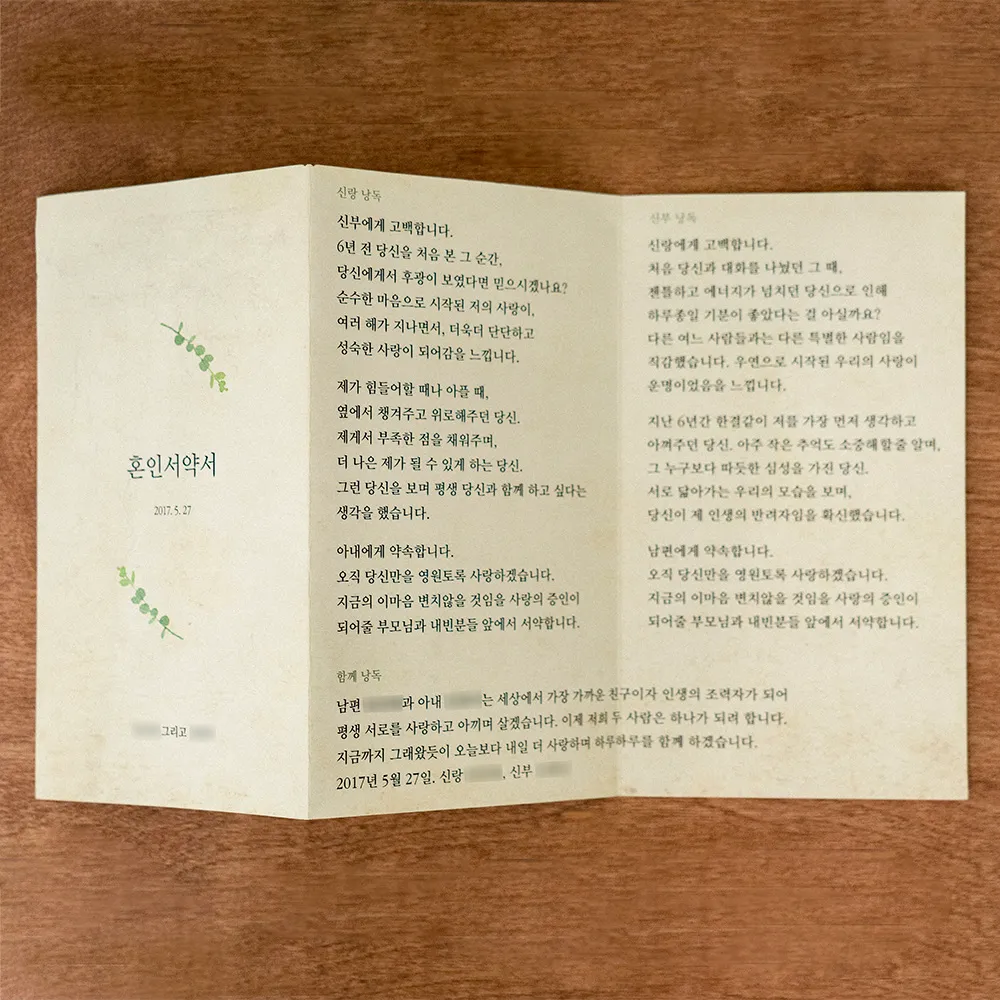 혼인서약서
2017. 5. 27
그리고
신랑 낭독
신부에게 고백합니다.
6년 전 당신을 처음 본 그 순간,
당신에게서 후광이 보였다면 믿으시겠나요?
순수한 마음으로 시작된 저의 사랑이,
여러 해가 지나면서, 더욱더 단단하고
성숙한 사랑이 되어감을 느낍니다.
제가 힘들어할 때나 아플 때,
옆에서 챙겨주고 위로해주던 당신.
제게서 부족한 점을 채워주며,
더 나은 제가 될 수 있게 하는 당신.
그런 당신을 보며 평생 당신과 함께 하고 싶다는
생각을 했습니다.
아내에게 약속합니다.
오직 당신만을 영원토록 사랑하겠습니다.
지금의 이마음 변치않을 것임을 사랑의 증인이
되어줄 부모님과 내빈분들 앞에서 서약합니다.
신부 낭독
신랑에게 고백합니다.
처음 당신과 대화를 나눴던 그 때,
젠틀하고 에너지가 넘치던 당신으로 인해
하루종일 기분이 좋았다는 걸 아실까요?
다른 여느 사람들과는 다른 특별한 사람임을
직감했습니다. 우연으로 시작된 우리의 사랑이
운명이었음을 느낍니다.
지난 6년간 한결같이 저를 가장 먼저 생각하고
아껴주던 당신. 아주 작은 추억도 소중해할 줄 알며,
그 누구보다 따듯한 심성을 가진 당신.
서로 닮아가는 우리의 모습을 보며,
당신이 제 인생의 반려자임을 확신했습니다.
남편에게 약속합니다.
오직 당신만을 영원토록 사랑하겠습니다.
지금의 이마음 변치않을 것임을 사랑의 증인이
되어줄 부모님과 내빈분들 앞에서 서약합니다.
함께 낭독
남편 과 아내 는 세상에서 가장 가까운 친구이자 인생의 조력자가 되어
평생 서로를 사랑하고 아끼며 살겠습니다. 이제 저희 두 사람은 하나가 되려 합니다.
지금까지 그래왔듯이 오늘보다 내일 더 사랑하며 하루하루를 함께 하겠습니다.
2017년 5월 27일. 신랑 , 신부